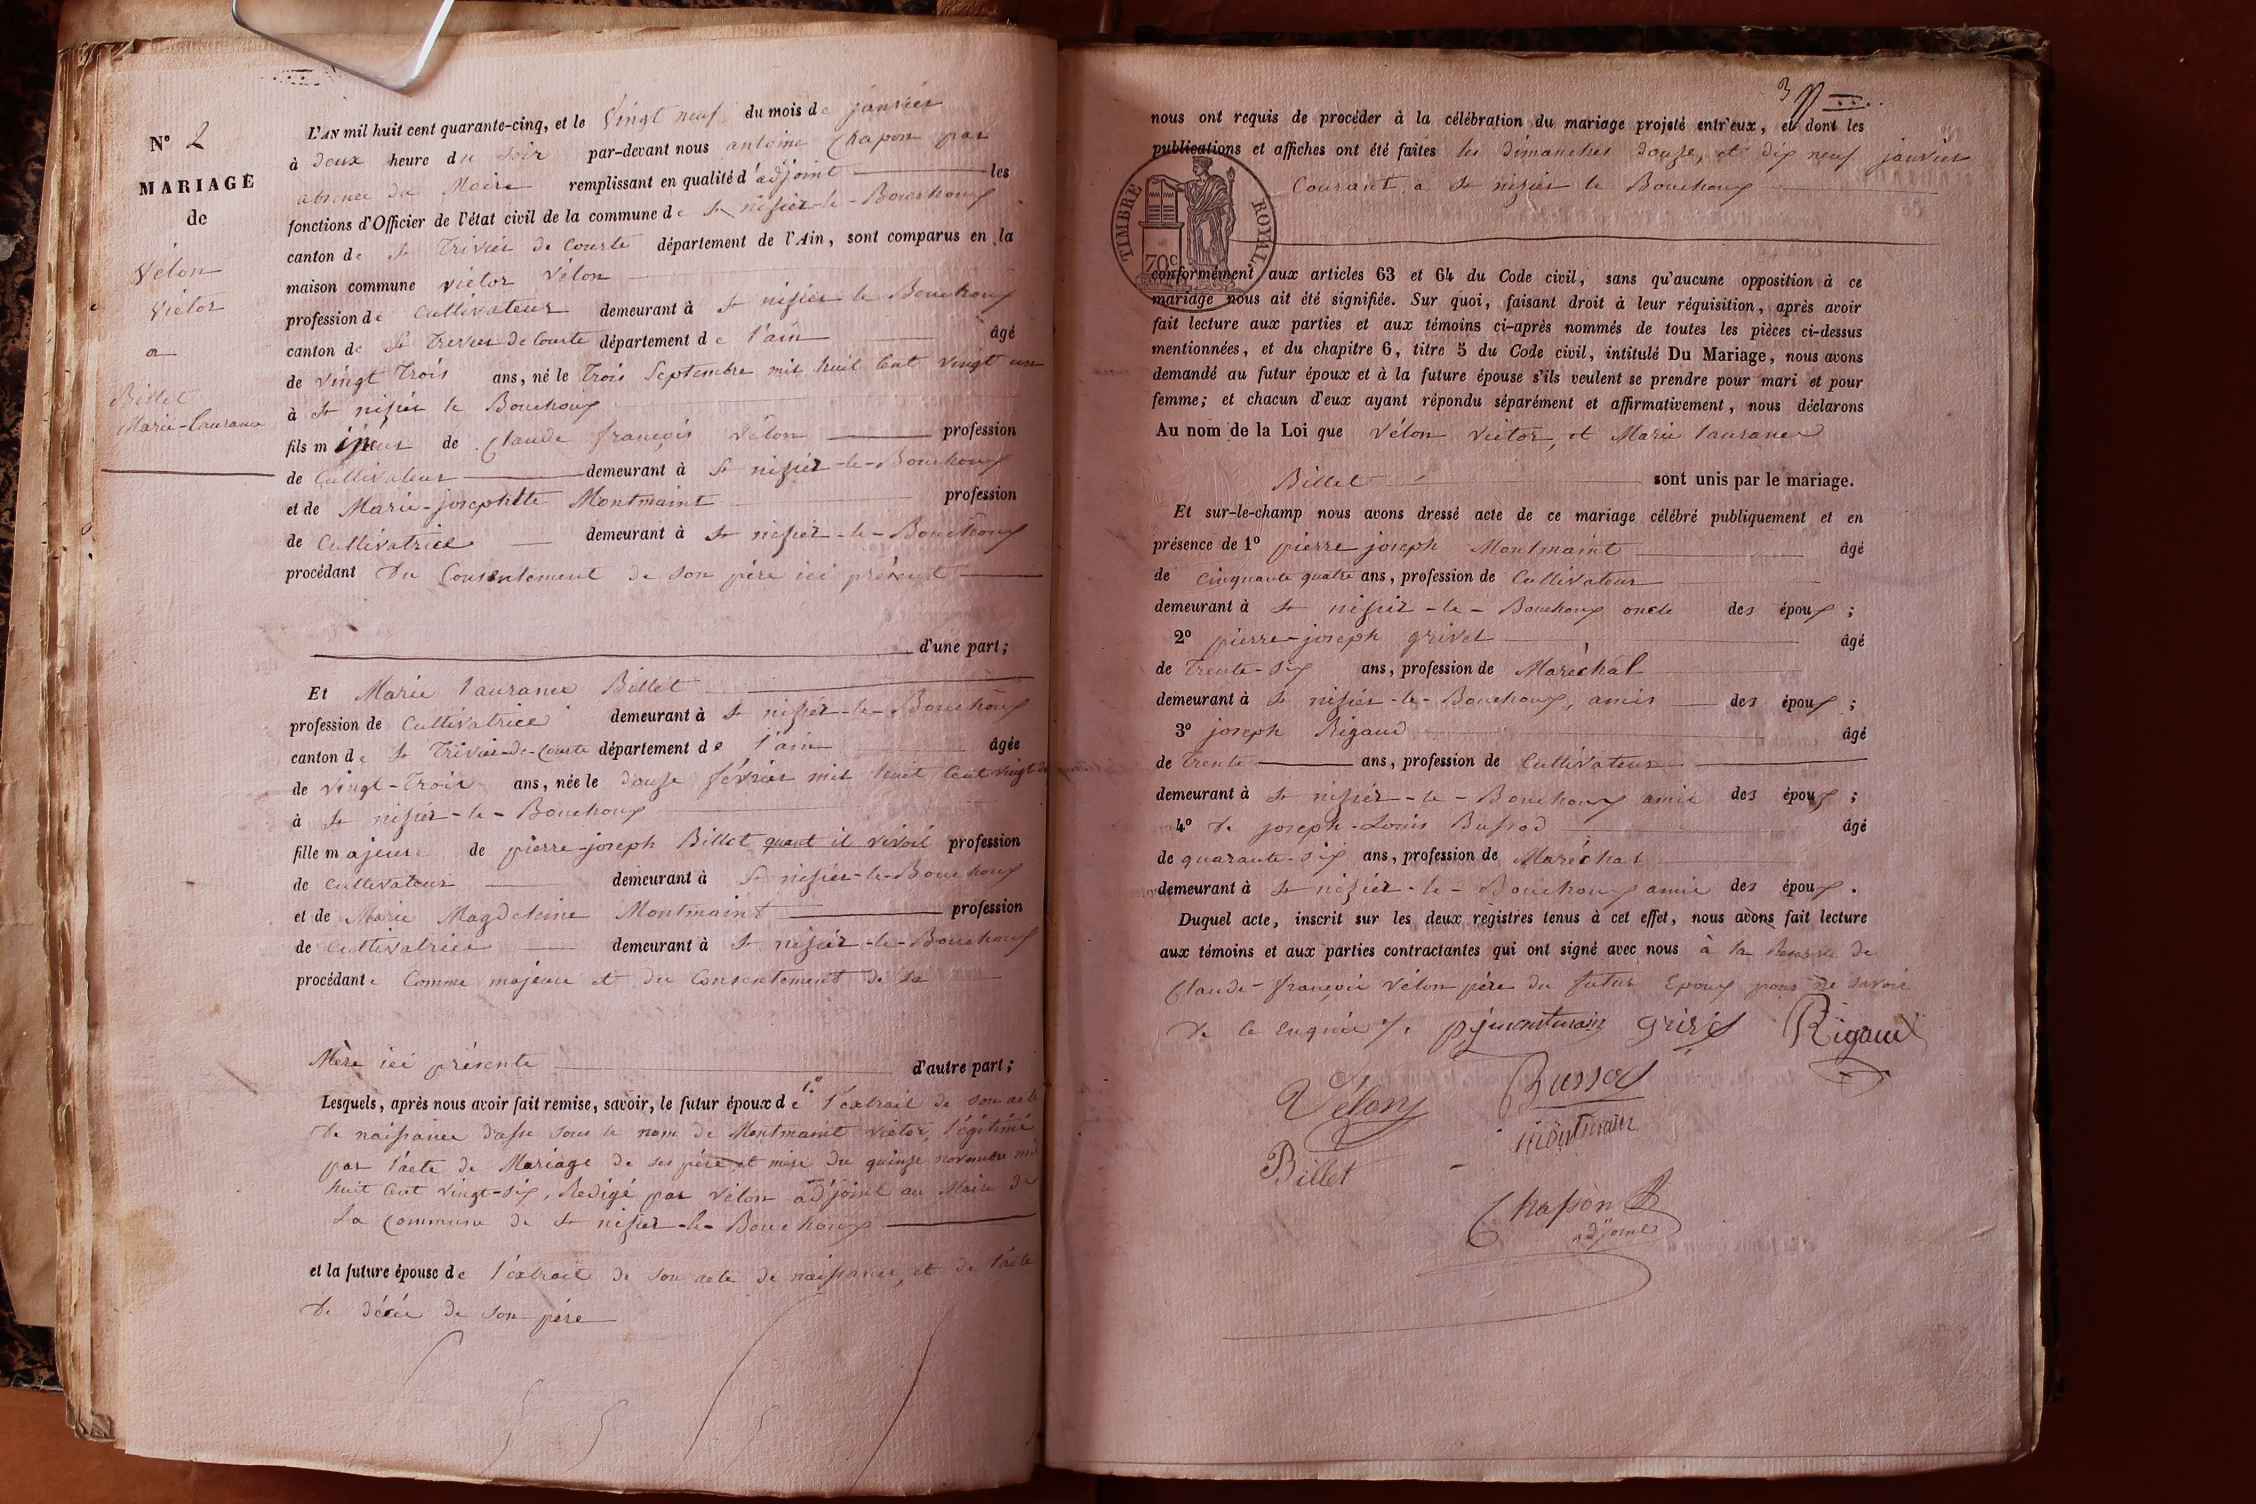 N° 2
MARIAGE
de
Vélon
Victor
a
Billet
Marie-Laurance
L'AN mil huit cent quarante-cinq, et le Vingt neuf du mois de janvier
à Deux heure du soir par-devant nous antoine Chapon par
absence du Maire remplissant en qualité d'adjoint les
fonctions d'Officier de l'état civil de la commune de St nisier-le-Bouchoux
canton de St Trivier de Courte département de l'Ain, sont comparus en la
maison commune victor vélon
profession de Cultivateur demeurant à St nisier le Bouchoux
canton de St Trivier de Courte département de l'ain âgé
de vingt trois ans, né le trois Septembre mil huit Cent vingt un
à St nisier le Bouchoux
fils mineur de Claude françois vélon profession
de Cultivateur demeurant à St nisier-le-Bouchoux
et de Marie-josephte Montmaint profession
de Cultivatrice demeurant à St nisier-le-Bouchoux
procédant Du Consentement de son père ici présent
d'une part;
Et Marie laurance Billet
profession de Cultivatrice demeurant à St nisier-le-Bouchoux
canton de St Trivier-de-Courte département de l'ain âgée
de vingt-Trois ans, née le Douze février mil huit Cent vingt
à St nisier-le-Bouchoux
fille majeure de pierre-joseph Billet quant il vivoit profession
de Cultivateur demeurant à St nisier-le-Bouchoux
et de Marie Magdeleine Montmaint profession
de Cultivatrice demeurant à St nisier-le-Bouchoux
procédante Comme majeure et du Consentement de sa
Mère ici présente d'autre part;
Lesquels, après nous avoir fait remise, savoir, le futur époux de 1° l'extrait de son acte
De naissance sous le nom de Montmaint victor, légitimé
par l'acte de Mariage de ses père et mère du quinze novembre mil
huit Cent vingt-six, Redigé par Vélon adjoint au Maire de
La Commune de St nisier-le-Bouchoux
et la future épouse de l'extrait de son acte de naissance, et de l'acte
De décè de son père
3
nous ont requis de procéder à la célébration du mariage projeté entr'eux, et dont les
publications et affiches ont été faites les dimanches douze, et dix neuf janvier
Courant, a St nisier le Bouchoux
TIMBRE ROYAL
70c
conformément aux articles 63 et 64 du Code civil, sans qu'aucune opposition à ce
mariage nous ait été signifiée. Sur quoi, faisant droit à leur réquisition, après avoir
fait lecture aux parties et aux témoins ci-après nommés de toutes les pièces ci-dessus
mentionnées, et du chapitre 6, titre 5 du Code civil, intitulé Du Mariage, nous avons
demandé au futur époux et à la future épouse s'ils veulent se prendre pour mari et pour
femme; et chacun d'eux ayant répondu séparément et affirmativement, nous déclarons
Au nom de la Loi que vélon victor, et Marie laurance
Billet sont unis par le mariage.
Et sur-le-champ nous avons dressé acte de ce mariage célébré publiquement et en
présence de 1° pierre joseph Montmaint âgé
de Cinquante quatre ans, profession de Cultivateur
demeurant à St nisier-le-Bouchoux oncle des époux;
2° pierre-joseph grivet âgé
de trente-six ans, profession de Maréchal
demeurant à St nisier-le-Bouchoux, amis des époux;
3° joseph Rigaud âgé
de trente ans, profession de Cultivateur
demeurant à St nisier-le-Bouchoux amis des époux;
4° De joseph-Louis Bussod âgé
de quarante-six ans, profession de Maréchal
demeurant à St nisier-le-Bouchoux amis des époux.
Duquel acte, inscrit sur les deux registres tenus à cet effet, nous avons fait lecture
aux témoins et aux parties contractantes qui ont signé avec nous à la Reserve de
Claude-françois vélon père du futur Epoux pour ne savoir
De ce enquis
pj montmain Rigaud
Vélon Bussod
montmain
Billet
Chapon
adjoint